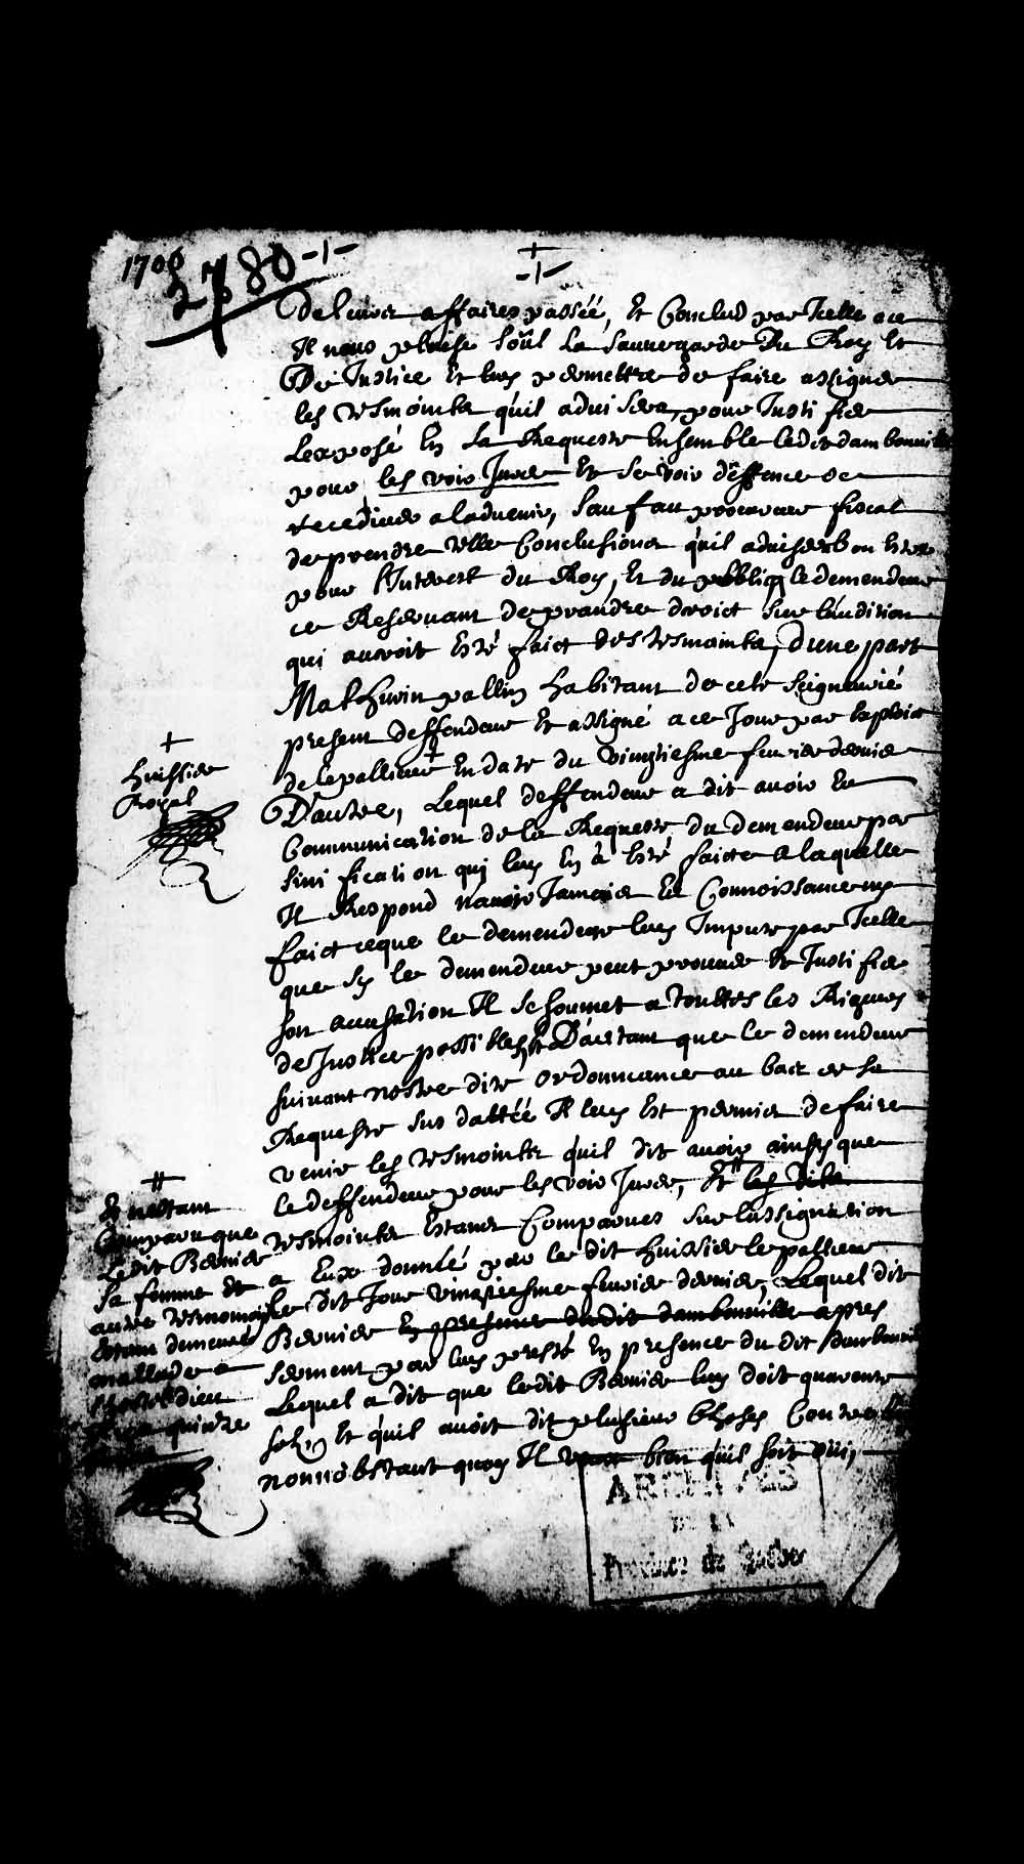 1706
2780 -1-
+
-1-
de leurs affaires passéé, Et Conclud par Icelle a ce
Il nous plaise soûs La Sauvegarde Du Roy Et
De Justice Et luy permettre de faire assigner
les tesmoints quil advisera, pour Justifier
Lexposé En Sa Requeste Ensemble ledit dambourville
pour les voir Jurer Et se voir deffence de
recediver a ladvenir, Sauf au procureur fiscal
de prendre telle Conclusions quil advisera bon Estre
pour lInterest du Roy, Et du publiq le demendeur
ce Reservant de prandre droict sur laudition
qui auroit Esté faict des tesmoints, dune part
Mathurin pallin habitant de cete seigneurié
present deffendeur Et assigné a ce Jour par Exploit
de lepallieur + En date du vingtiesme fevrier dernier
D'autre, Lequel deffendeur a dit avoir Eu
Communication de la Requeste du demendeur par
sinification quj luy En à Esté faicte A laquelle
Il Respond navoir Jamais Eu Connoissance ny
faict ceque le demendeur luy Impute par Icelle
que sy le demendeur peut prouver Et Justifier
son accusation Il se soumet a touttes les Rigueurs
de Justice possibles, Et D'autant que le demendeur
suivant nostre dite ordonnance au bact de sa
Requeste sus dattéé Il luy Est permis de faire
venir les tesmoints quil dit avoir ainsy que
le deffendeur pour les voir Jurer, Et # les dits
tesmoints Estant Comparues sur lassignation
a Eux donnéé par le dit huissier lepallieur
le dit Jour vingtiesme fevrier dernier, Lequel dit
Bernier En presence du dit dambourville apres
serment par luy presté En presence du dit dambourville
Lequel a dit que ledit Bernier luy doit quarente
sols, Et quil avoit dit plusieur choses Contre
nonnobstant quoy Il veut bien quil soit oui,
+
huissier
Royal
#
Et nestant
Comparu que
Ledit Bernier
Sa femme Et
autre tesmoins
Estant demeuré
mallade a
lhostel dieu
quinze
ARCHIVES
DE LA
Province de Québec